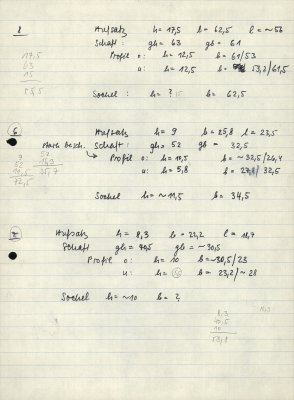 Aufsatz h = 17,5 b = 62,5 l = ~56
Schaft: gh = 63 gb = 61
17,5
63
15
Profil o: h = 12,5 b = 61/53
u: h = 12,5 b = 53,2/61,5
Sockel: h = ? 15 b = 62,5
Aufsatz h = 9 b = 25,8 l = 23,5
stark besch. Schaft: gh = 52 gb = 32,5
9
52
Profil o: h = 10,5 b = ~32,5/24,4
u: h = 5,8 b = 32,5
72,5
Sockel h = ~11,5 b = 34,5
Aufsatz h = 8,3 b = 22,2 l =
Schaft gh = 40,5 gb = ~30,5
Profil o: h = 10 b = ~30,5/23
u: h = b = 23,2/~28
Sockel h = ~10 b = ?
8,3
40,5
10